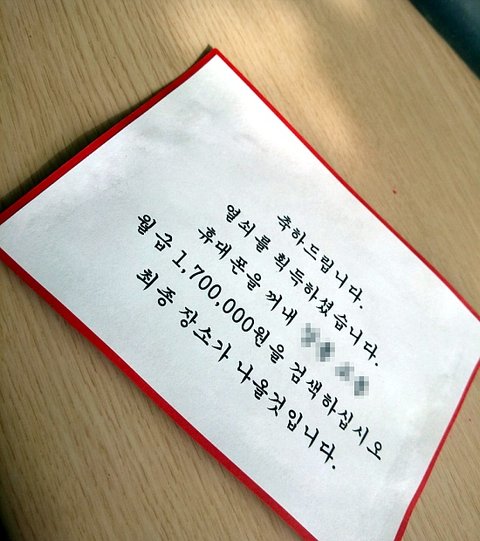 축하드립니다.
열쇠를 획득하셨습니다.
휴대폰을 꺼내
월급 1,700,000원을 검색하십시오
최종 장소가 나올것입니다.